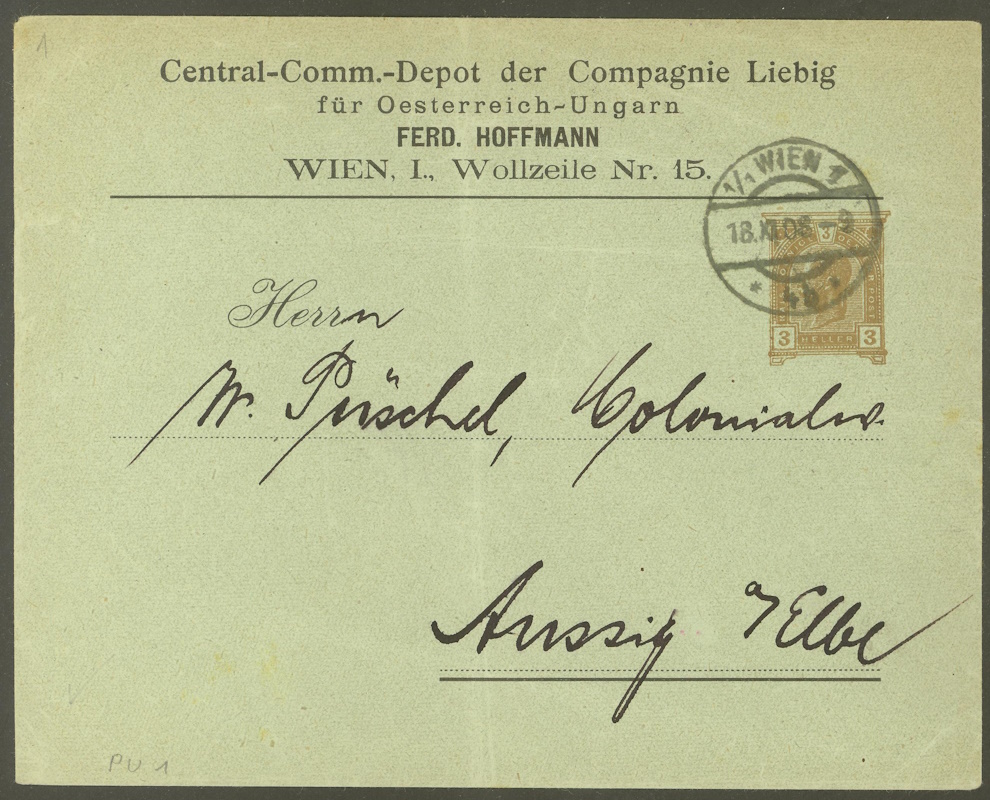 1
Central-Comm.-Depot der Compagnie Liebig
für Oesterreich-Ungarn
FERD. HOFFMANN
WIEN, I., Wollzeile Nr. 15.
1/1 WIEN 1
18.XI.08-9
* 4b *
3
3 HELLER 3
Herrn
W. Püschel, Colonialw.
Aussig a/Elbe
PU 1